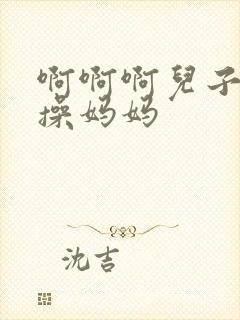 啊啊啊兒子
操妈妈
沈吉